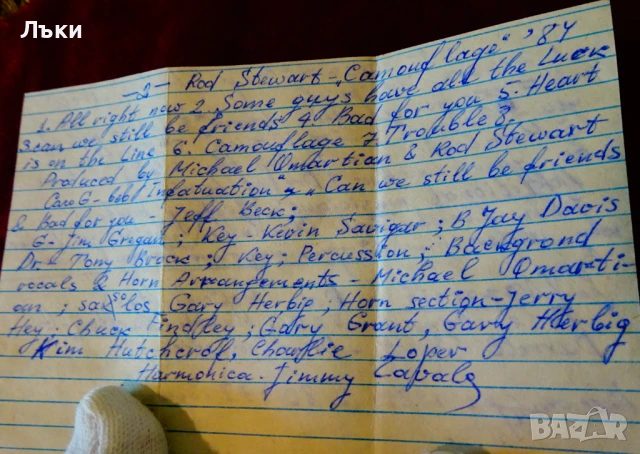 Лъки
-2- Rod Stewart - „Camouflage“ '84
1. All right now 2. Some guys have all the luck
3 can we still be friends 4 Bad for you 5. Heart
is on the Line 6. Camouflage 7 Trouble 8.
Produced by Michael Omartian & Rod Stewart
Соло G- във Infatuation“ „Can we still be friends
& Bad for you - Jeff Beck;
G- Jim Gregan; Key - Kevin Savigar; B Jay Davis
Dr- Tony Brock; Key; Percussion; Backgrond
vocals & Horn Arrangements - Michael Omarti-
an; sax solos Gary Herbig; Horn section - Jerry
Hey; Chuck Findley; Gary Grant, Gary Herbig
Kim Hutchcroll, Chourlie Loper
Harmonica - Jimmy Zavala
BAZAR